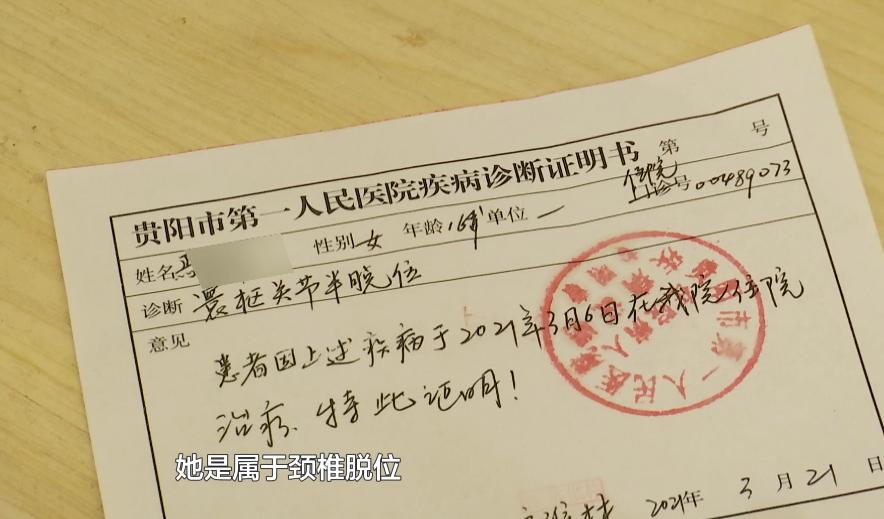 贵阳市第一人民医院疾病诊断证明书 第 号
住院
门诊号 00489073
姓名 马 性别 女 年龄 16岁 单位 一
诊断 寰枢关节半脱位
意见
患者因上述疾病于2021年3月6日在我院住院
治疗、特此证明！
她是属于颈椎脱位
2021年 3 月 21 日